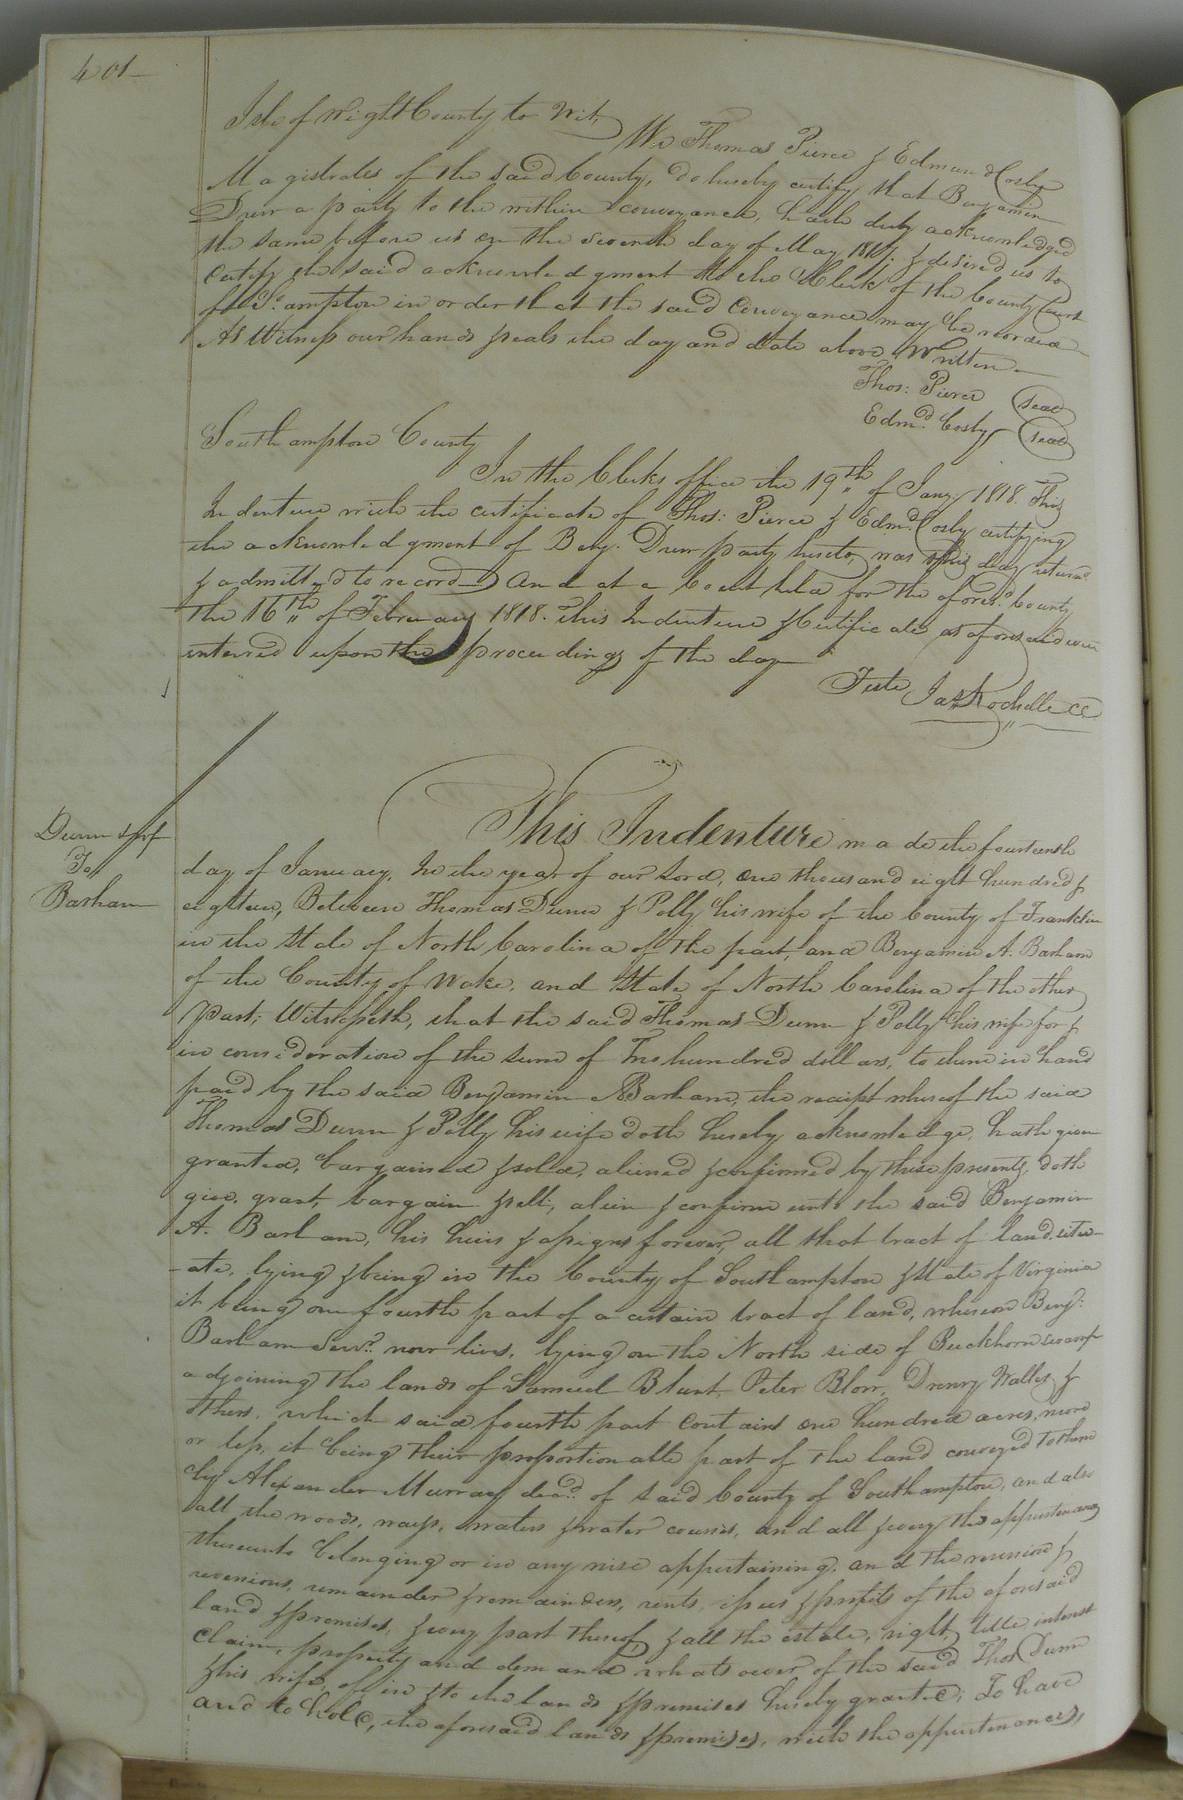 401
Isle of Wight County to Wit,
We Thomas Pierce & Edmund Cosby
Magistrates of the said County, do hereby certify that Benjamin
Drew a party to the within conveyance, hath duly acknowledged
the same before us on the seventh day of May 1817. & desired us to
Certify the said acknowledgment to the Clerk of the County Court
of So.ampton in order that the said Conveyance may be recorded
As Witness our hands & seals the day and date above Written
Thos: Pierce (Seal)
Edmd. Cosby (seal)
Southampton County
In the Clerks office the 19th of Jany. 1818. This
Indenture with the certificate of Thos: Pierce & Edmd. Cosby certifying
the acknowledgment of Benj. Drew party hereto, was this day returnd.
& admitted to record And at a Court held for the aforesd. County
the 16th of February 1818. This Indenture & Certificate as aforesaid were
entered upon the proceedings of the day
Teste, Jas. Rochelle CC
Dunn & wf
To
Barham
This Indenture made the fourteenth
day of January, In the year of our Lord, one thousand eight hundred &
eighteen, Between Thomas Dunn & Polly his wife of the County of Franklin
in the State of North Carolina of the part, and Benjamin A. Barham
of the County of Wake, and State of North Carolina of the other
Part; Witnesseth, that the said Thomas Dunn & Polly his wife for &
in consideration of the sum of Two hundred dollars, to them in hand
paid by the said Benjamin A Barham, the receipt whereof the said
Thomas Dunn & Polly his wife doth hereby acknowledge, hath given
granted, bargained & sold, aliened & confirmed by these presents, doth
give, grant, bargain & sell, alien & confirm unto the said Benjamin
A. Barham, his heirs & assigns forever, all that tract of land, situ-
-ate, lying & being in the County of Southampton & State of Virginia
it being one fourth part of a certain tract of land, whereon Benj:
Barham Senr. now lives, lying on the North side of Buckhorn swamp
adjoining the lands of Samuel Blunt, Peter Blow, Drewry Waller &
others, which said fourth part contains one hundred acres, more
or less, it being their proportionable part of the land conveyed to them
by Alexander Murray decd. of said County of Southampton, and also
all the woods, ways, waters & water courses, and all & every the appurtenances
thereunto belonging or in any wise appertaining, and the reversion &
reversions, remainder & remainders, rents, issues & profits of the aforesaid
land & premises, & every part thereof, & all the estate, right, title, interest
Claim, property and demand whatsoever of the said Thos. Dunn
& his wife, of in & to the lands & premises hereby granted; To have
and to hold, the aforesaid lands & premises, with the appurtenances,